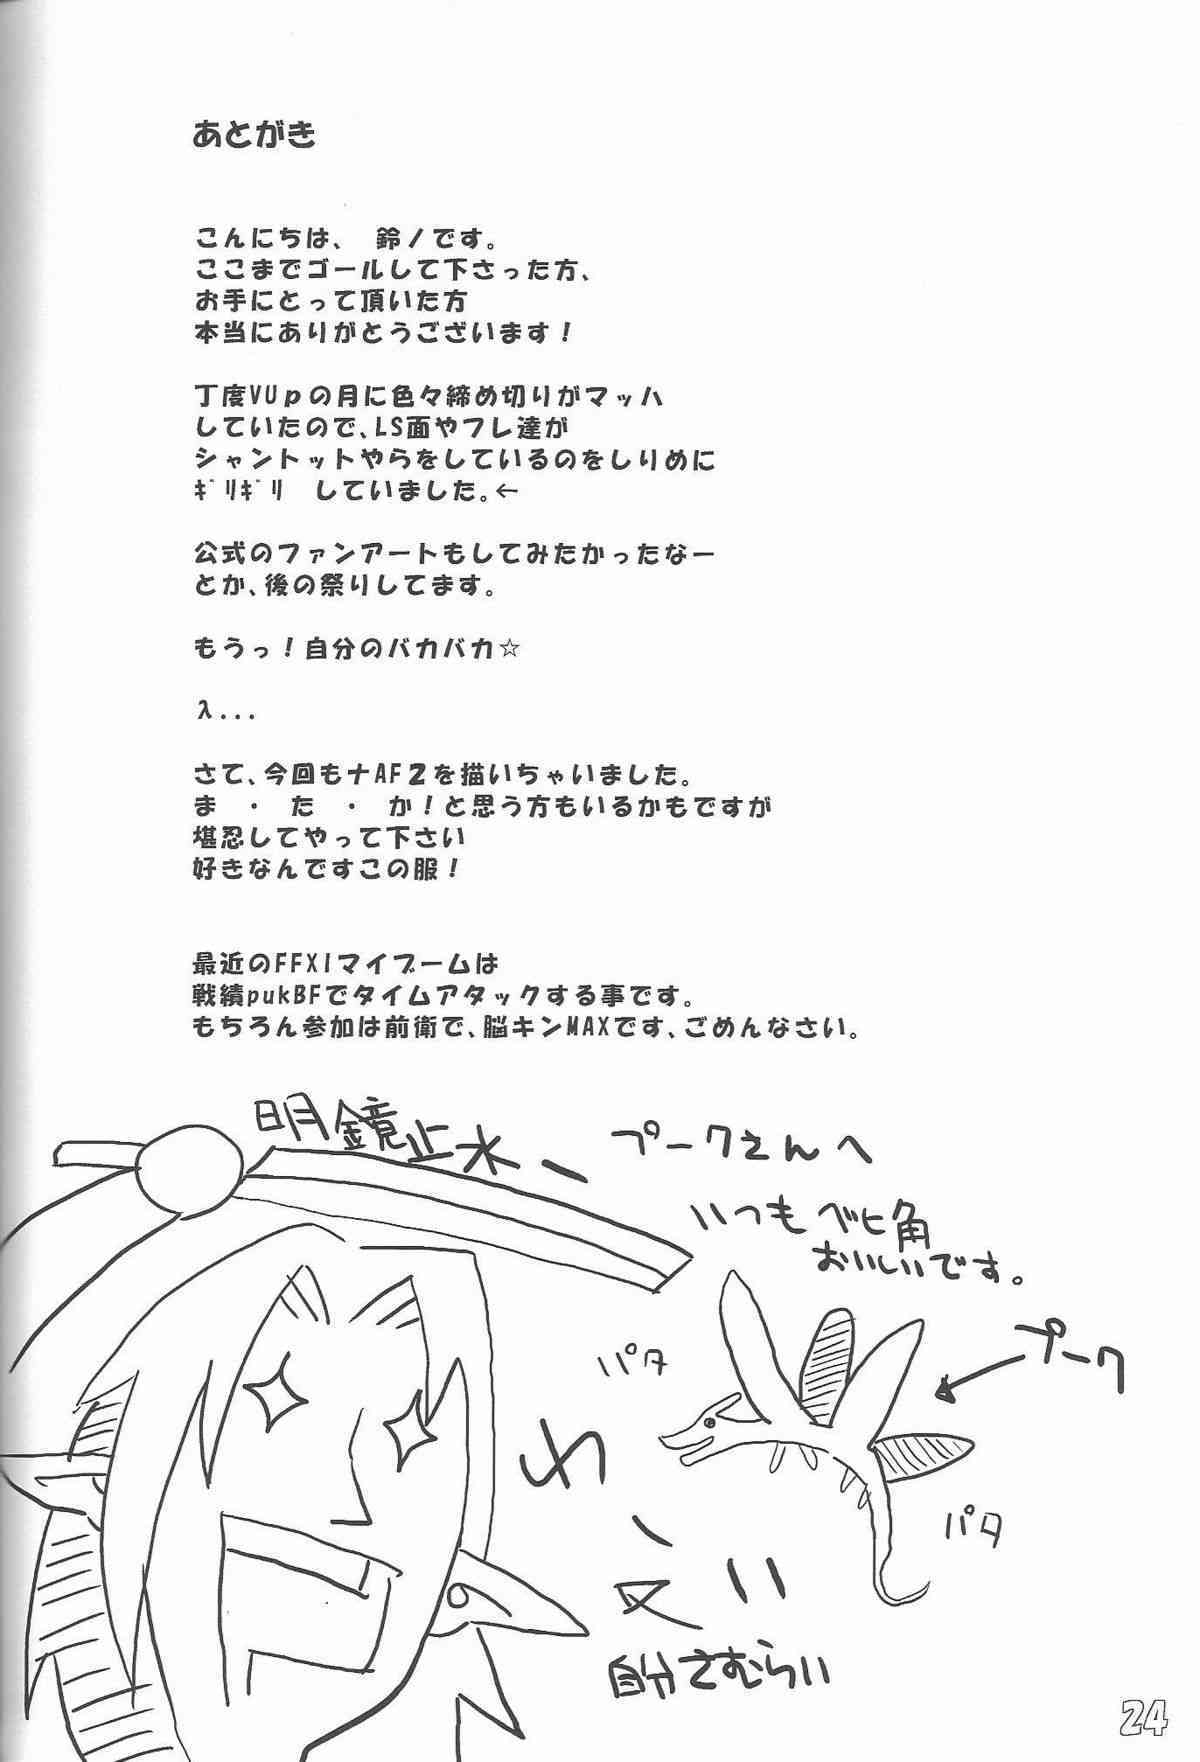 あとがき
こんにちは、　鈴ノです。
ここまでゴールして下さった方、
お手にとって頂いた方
本当にありがとうございます！
丁度VUpの月に色々締め切りがマッハ
していたので、LS面やフレ達が
シャントットやらをしているのをしりめに
ｷﾞﾘｷﾞﾘ　していました。←
公式のファンアートもしてみたかったなー
とか、後の祭りしてます。
もうっ！自分のバカバカ☆
λ...
さて、今回もナAF２を描いちゃいました。
ま　・　た　・　か！と思う方もいるかもですが
堪忍してやって下さい
好きなんですこの服！
最近のFFXIマイブームは
戦績pukBFでタイムアタックする事です。
もちろん参加は前衛で、脳キンMAXです、ごめんなさい。
明鏡止水ー
プークさんへ
いつもベヒ角
おいしいです。
プーク
パタ
パタ
自分さむらい
24